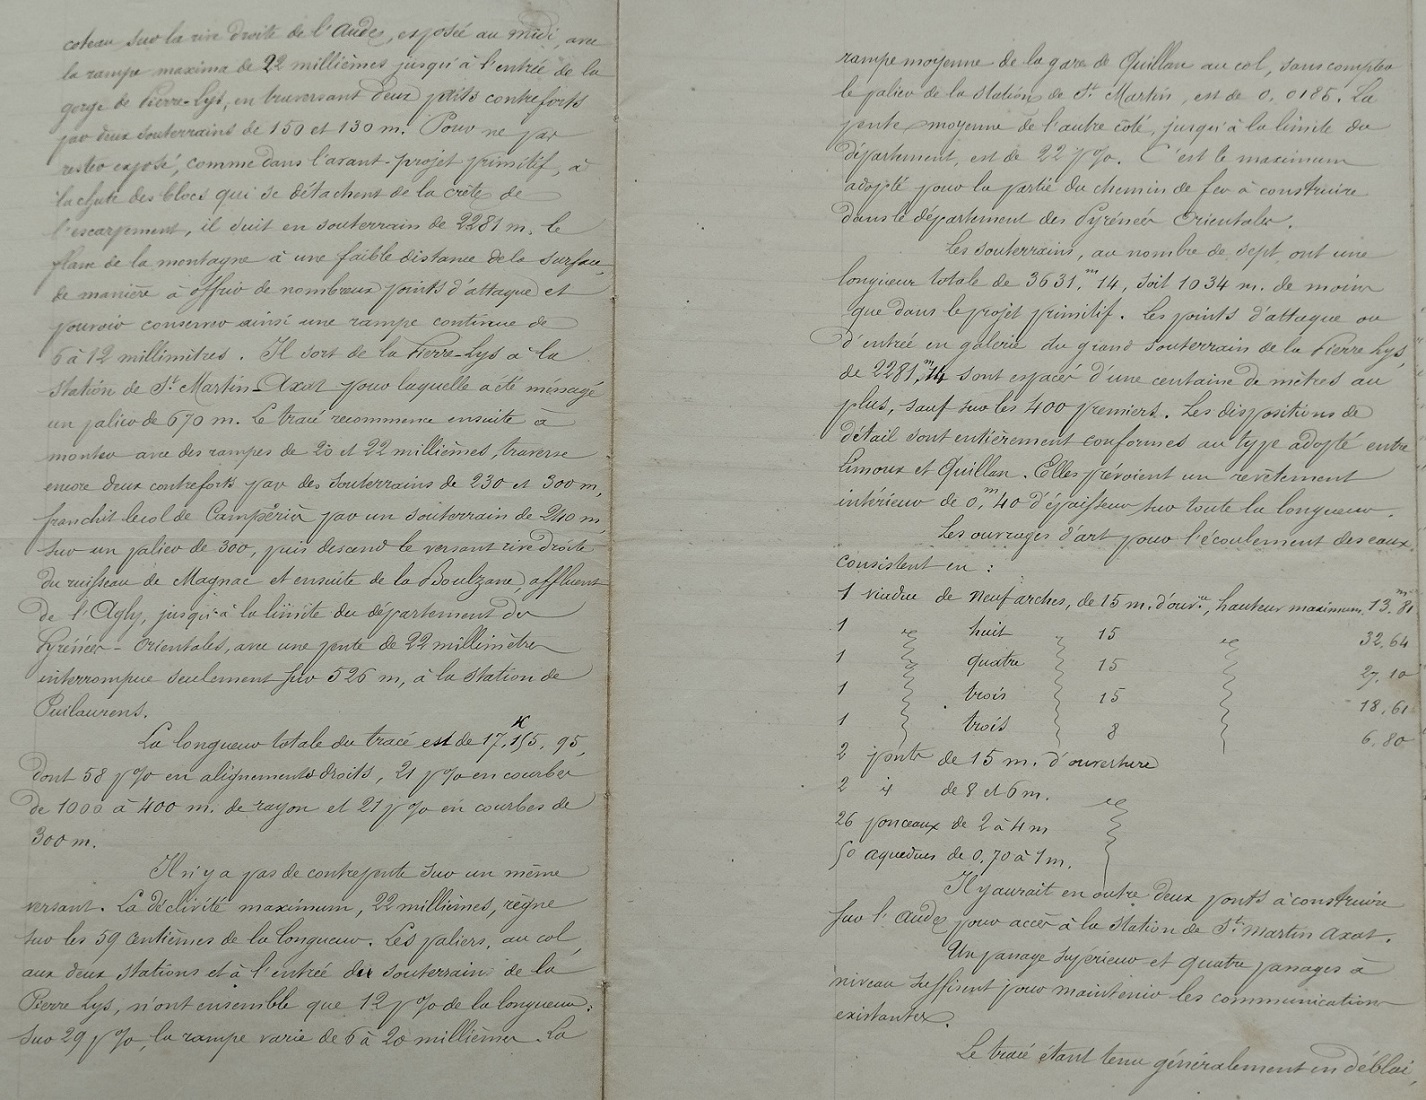 coteau sur la rive droite de l'Aude, exposé au midi, avec
la rampe maxima de 22 millièmes jusqu'à l'entrée de la
gorge de Pierre-Lys, en traversant deux petits contreforts
par deux souterrains de 150 et 130 m. Pour ne pas
rester exposé, comme dans l'avant-projet primitif, à
la chute des blocs qui se détachent de la crête de
l'escarpement, il suit en souterrain de 2281 m. le
flanc de la montagne à une faible distance de la surface,
de manière à offrir de nombreux points d'attaque et
pouvoir conserver ainsi une rampe continue de
6 à 12 millimètres. Il sort de la Pierre-Lys à la
station de St Martin-Axat pour laquelle a été ménagé
un palier de 670 m. Le tracé recommence ensuite à
monter avec des rampes de 20 et 22 millièmes, traverse
encore deux contreforts par des souterrains de 230 et 300 m,
franchit le col de Campérié par un souterrain de 240 m
sur un palier de 300, puis descend le versant rive droite
du ruisseau de Magnac et ensuite de la Boulzane, affluent
de l'Agly, jusqu'à la limite du département des
Pyrénées-Orientales, avec une pente de 22 millimètres
interrompue seulement sur 526 m, à la station de
Puilaurens.
La longueur totale du tracé est de 17.K155, 95,
dont 58 p% en alignements droits, 21 p% en courbes
de 1000 à 400 m. de rayon et 21 p% en courbes de
300 m.
Il n'y a pas de contrepente sur un même
versant. La déclivité maximum, 22 millièmes, règne
sur les 59 centièmes de la longueur. Les paliers, au col,
aux deux stations et à l'entrée du souterrain de la
Pierre Lys, n'ont ensemble que 12 p% de la longueur;
sur 29 p%, la rampe varie de 6 à 20 millièmes. La
rampe moyenne de la gare de Quillan au col, sans compter
le palier de la station de St Martin, est de 0,0185. La
pente moyenne de l'autre côté, jusqu'à la limite du
département, est de 22 p%. C'est le maximum
adopté pour la partie du chemin de fer à construire
dans le département des Pyrénées Orientales.
Les souterrains, au nombre de sept, ont une
longueur totale de 3631,m14, soit 1034 m. de moins
que dans le projet primitif. Les points d'attaque ou
d'entrée en galerie du grand souterrain de la Pierre Lys,
de 2281,m14 sont espacés d'une centaine de mètres au
plus, sauf sur les 400 premiers. Les dispositions de
détail sont entièrement conformes au type adopté entre
Limoux et Quillan. Elles prévoient un revêtement
intérieur de 0,m40 d'épaisseur sur toute la longueur.
Les ouvrages d'art pour l'écoulement des eaux
consistent en :
1 viaduc de neuf arches, de 15 m. d'ouvre, hauteur maximum. 13.m81
1 id huit id 15 id 32,64
1 quatre 15 27,10
1 trois 15 18,61
1 trois 8 6,80
2 ponts de 15 m. d'ouverture
2 id de 8 et 6 m. id
26 ponceaux de 2 à 4 m
50 aqueducs de 0,70 à 1 m.
Il y aurait en outre deux ponts à construire
sur l'Aude pour accès à la station de St Martin Axat.
Un passage supérieur et quatre passages à
niveau suffisent pour maintenir les communications
existantes.
Le tracé étant tenu généralement en déblai,